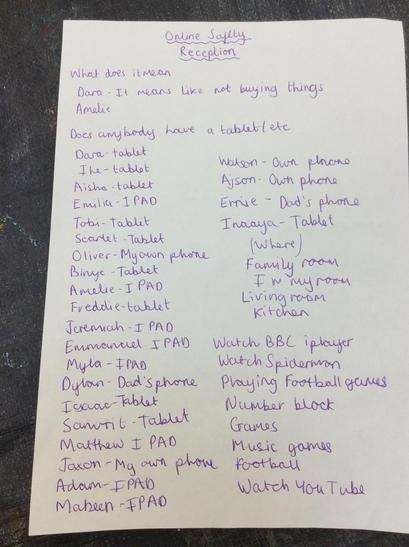 Online Safety
Reception
What does it mean
Dara - It means like not buying things
Amelie
Does anybody have a tablet/etc
Dara - tablet
Ihe - tablet
Aisha - tablet
Emilia - IPAD
Tobi - Tablet
Scarlet - Tablet
Oliver - My own phone
Binye - Tablet
Amelie - IPAD
Freddie - tablet
Jeremiah - IPAD
Emmanuel IPAD
Myla - IPAD
Dylan - Dad's phone
Isaac - Tablet
Sanvrit - Tablet
Matthew IPAD
Jaxon - My own phone
Adam - IPAD
Mabeen - IPAD
Watson - Own phone
Ajson - Own phone
Errise - Dad's phone
Inaaya - Tablet
(Where)
Family room
I'm my room
Living room
Kitchen
Watch BBC iplayer
Watch Spiderman
Playing Football games
Number block
Games
Music games
Football
Watch YouTube